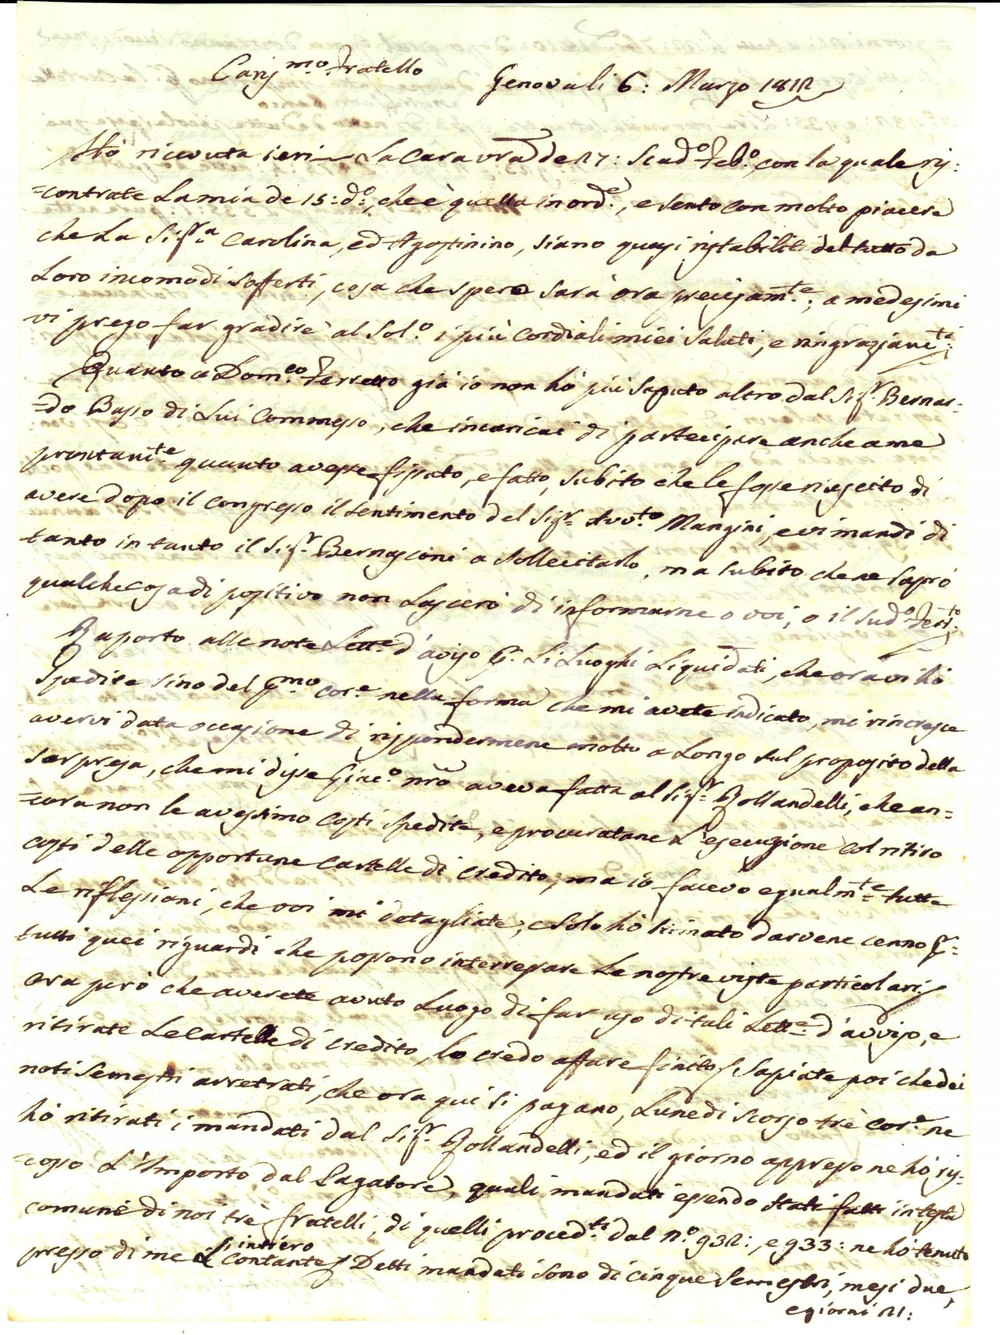 Cariss.mo Fratello Genova li 6: Marzo 1812
Hò ricevuta ieri La Cara vra de 27: Scad.o Feb.o, con la quale ris:
=contrate La mia de 15: d.o, che è quella in ord.e, e sento con molto piacere
che La Sig.ra Carolina, ed Agostinino, siano quasi ristabiliti del tutto da
Loro incomodi sofferti, cosa che spero sarà ora precisam.te; a medesimi
vi prego far gradire al Sol.o i più cordiali miei saluti, e ringraziam.ti
Quanto a Dom.co Ferretto già io non hò più saputo altro dal Sig.r Bernar=
=do Basso di Lui Commesso, che incaricai di partecipare anche a me
prontam.te quanto avesse fissato, e fatto, subito che le fosse riuscito di
avere dopo il congresso il sentimento del Sig.r Avv.to Mangini, e vi mandi di
tanto in tanto il Sig.r Bernasconi a sollecitarlo, ma subito che ne saprò
qualche cosa di positivo non Lascerò di informarne o voi, o il sud.o Ferr.to
Raporto alle note Lett.e d'aviso P. Li Luoghi Liquidati, che ora vi hò
spedite sino del P.mo cor.e nella forma che mi avete indicato, mi rincresce
avervi data occasione di rispondermene molto a Longo sul proposito della
sorpresa, che mi disse Giac.o nrō aveva fatta al Sig.r Bollandelli, che an=
=cora non le avessimo costì spedite, e procuratane L'esecuzione col ritiro
costì delle opportune Cartelle di Credito, ma io facevo egualm.te tutte
Le riflessioni, che voi mi detagliate; e solo hò stimato darvene cenno p.
tutti quei riguardi che possono interessare Le nostre viste particolari
ora però che averete avuto Luogo di far uso di tali Lett.e d'avviso, e
ritirate Le Cartelle di Credito, lo credo affare finito; Sapiate poi che dei
noti semestri arretrati, che ora qui si pagano, Lunedì scorso trè cor.e ne
hò ritirati i mandati dal Sig.r Bollandelli, ed il giorno appresso ne hò ris=
=cosso L'Importo dal Pagatore, quali mandati essendo stati fatti in testa
comune di noi trè fratelli, di quelli proced.ti dal n.o 932:, e 933: ne hò tenuto
presso di me L'intiero Contante; Detti mandati sono di cinque Semestri, mesi due,
e giorni 21: